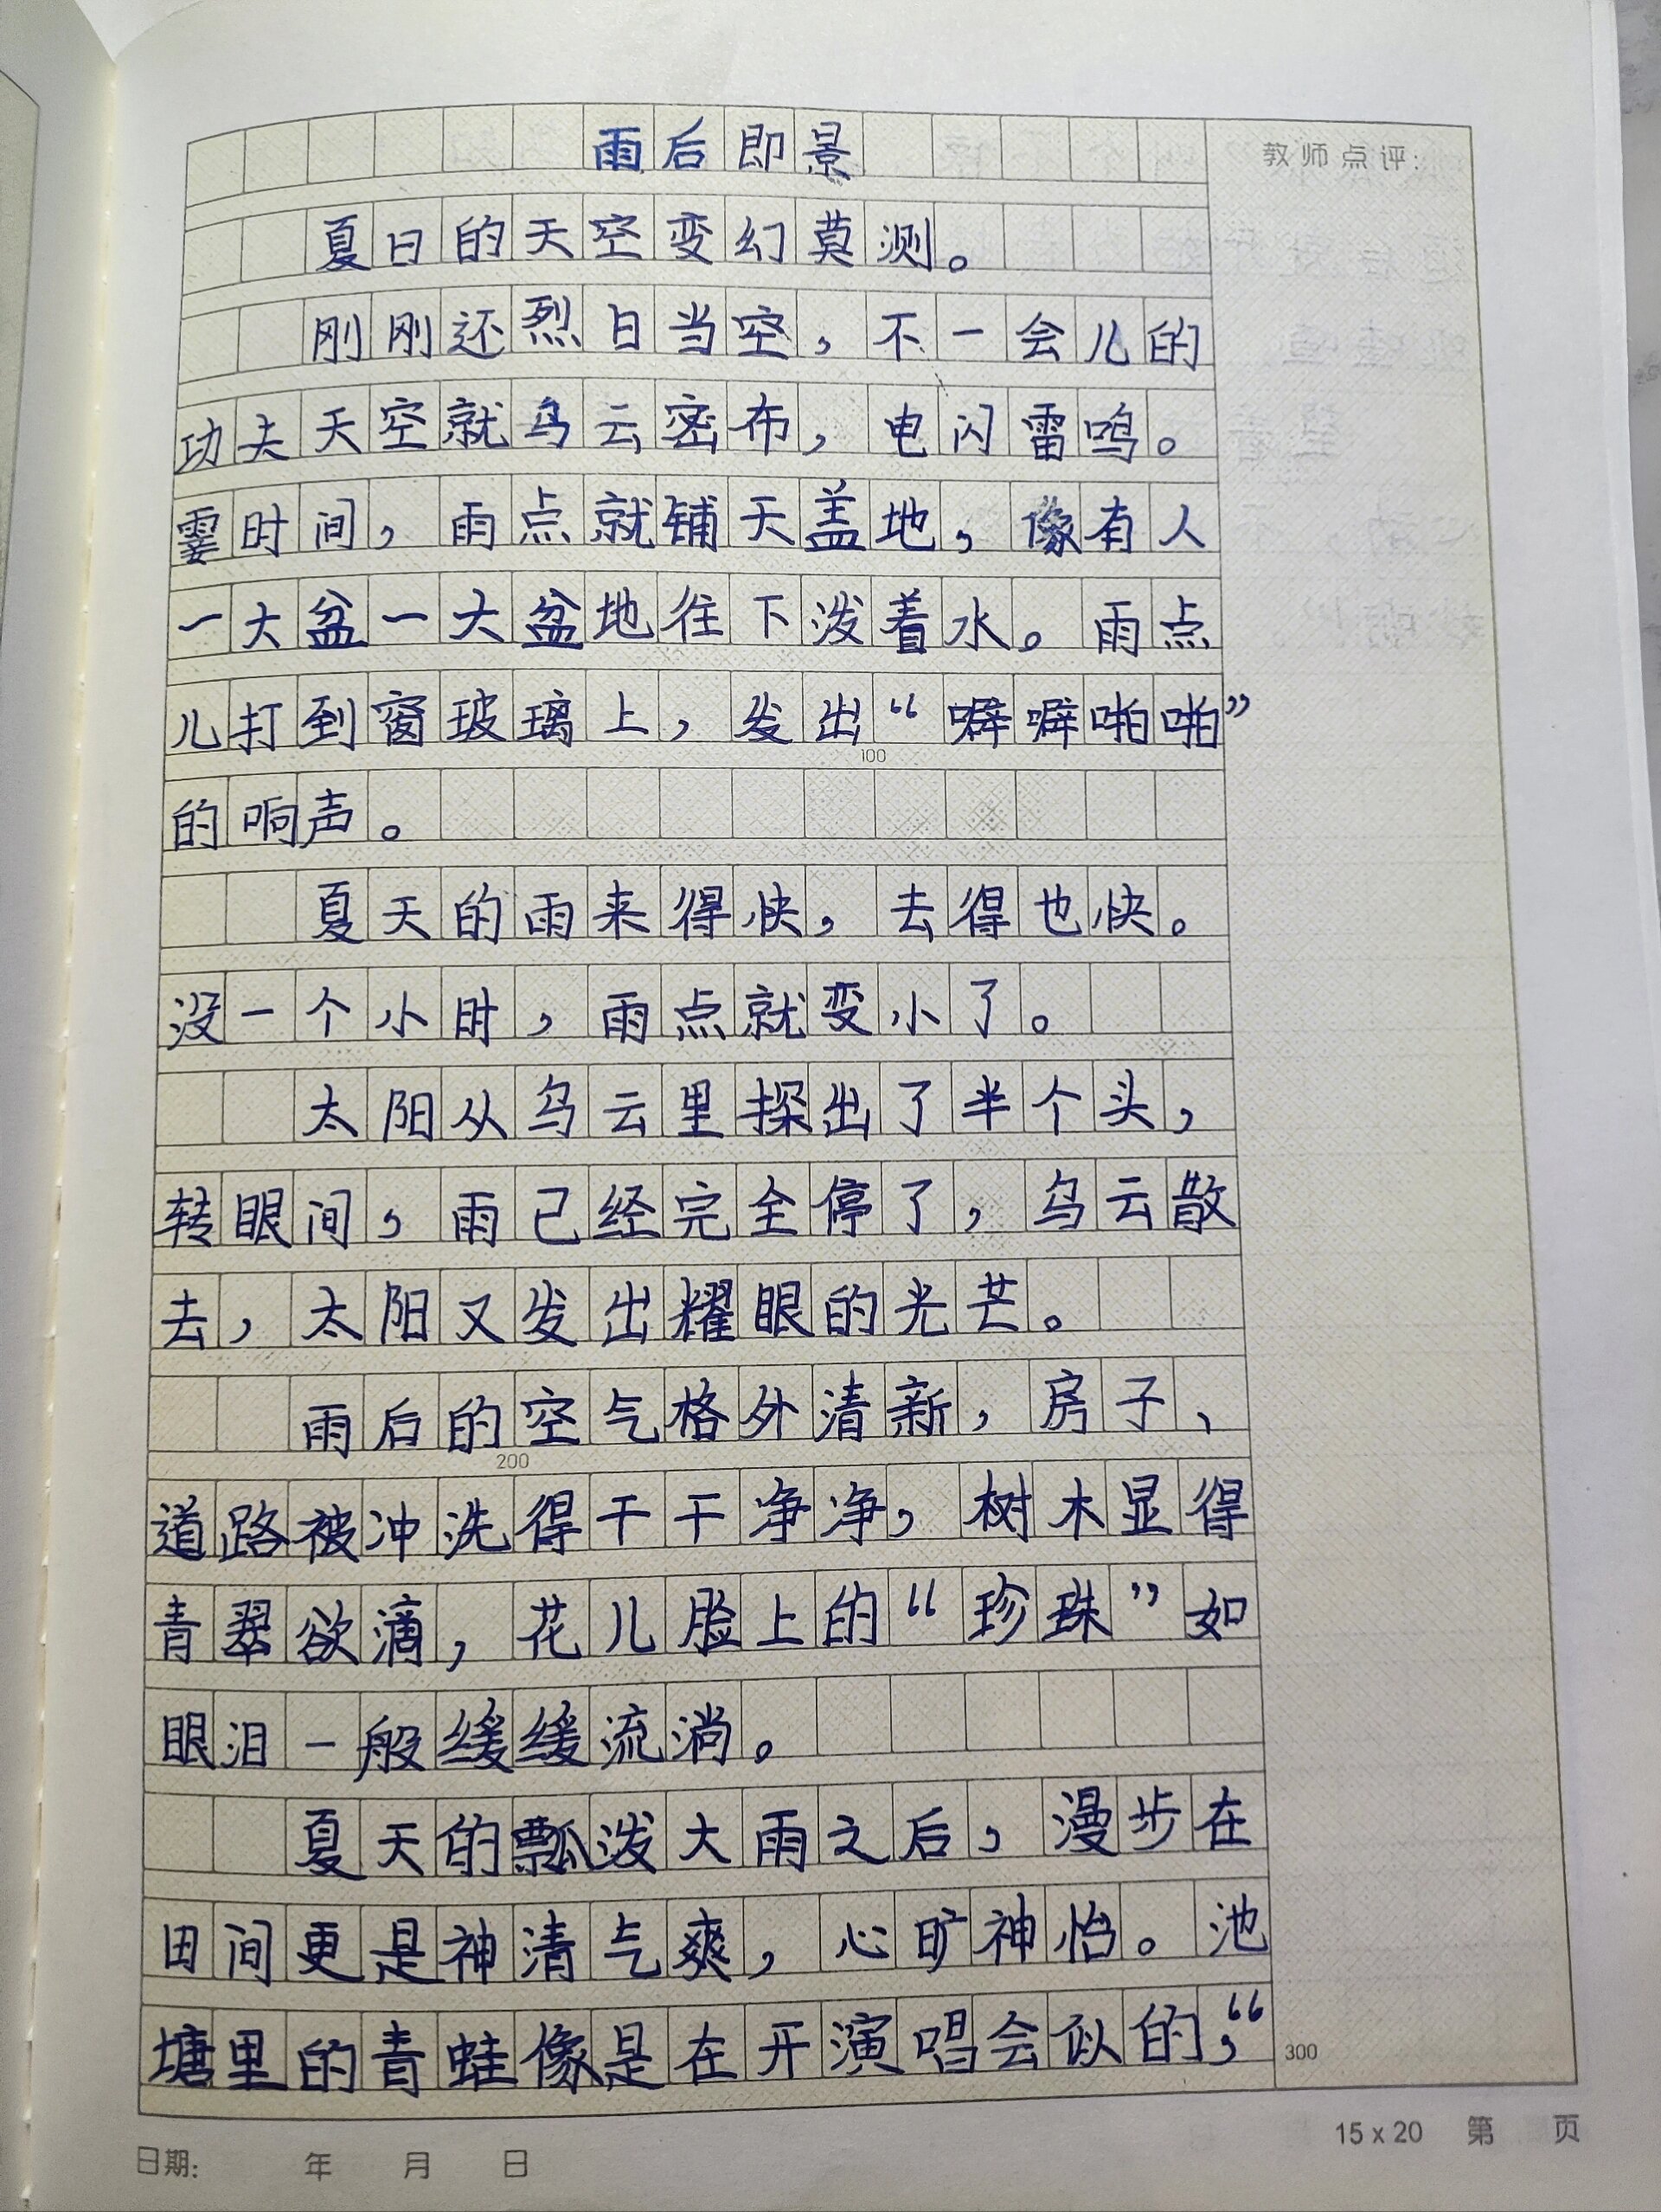 雨后即景
教师点评:
夏日的天空变幻莫测。
刚刚还烈日当空,不一会儿的
功夫天空就乌云密布,电闪雷鸣。
霎时间,雨点就铺天盖地,像有人
一大盆一大盆地往下泼着水。雨点
儿打到窗玻璃上,发出“噼噼啪啪”
100
的响声。
夏天的雨来得快,去得也快。
没一个小时,雨点就变小了。
太阳从乌云里探出了半个头,
转眼间,雨已经完全停了,乌云散
去,太阳又发出耀眼的光芒。
雨后的空气格外清新,房子、
200
道路被冲洗得干干净净,树木显得
青翠欲滴,花儿脸上的“珍珠”如
眼泪一般缓缓流淌。
夏天的瓢泼大雨之后,漫步在
田间更是神清气爽,心旷神怡。池
塘里的青蛙像是在开演唱会似的,“
300
15 x 20 第 页
日期: 年 月 日